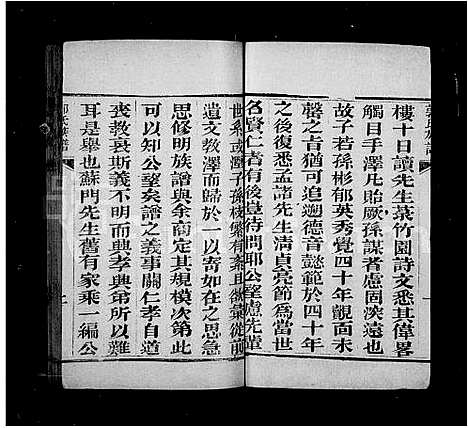 樓十日讀先生菉竹園詩文悉其偉畧
觸目手澤凡貽厥孫謀者慮固深遠也
故子若孫彬郁英秀覺四十年觀面未
罄之音猶可追遡德音懿範於四十年
之後復悉孟諸先生清貞亮節為當世
名賢仁者有後豈待問耶公望慮先輩
世系或湮子孫枝繁有紊且欲彙從前
遺文教澤而歸於一以寄如在之思急
思修明族譜與余商定其規模次第此
可以知公望矣譜之義事關仁孝自道
喪教衰斯義不明而興孝興弟所以難
耳是舉也蘇門先生舊有家乘一編公